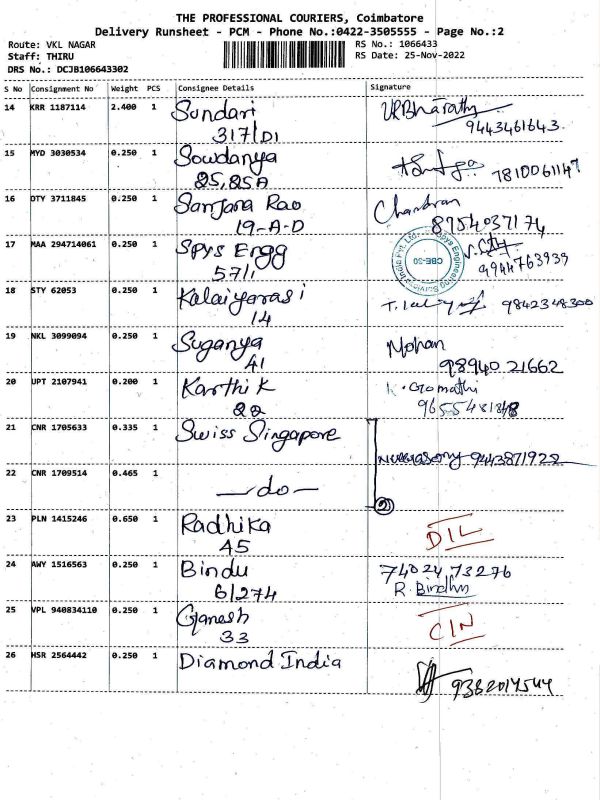 THE PROFESSIONAL COURIERS, Coimbatore
Delivery Runsheet - PCM - Phone No.:0422-3505555 - Page No.:2
Route: VKL NAGAR
RS No.: 1066433
Staff: THIRU
RS Date: 25-Nov-2022
DRS No.: DCJB106643302
S No Consignment No Weight PCS Consignee Details Signature
14 KRR 1187114 2.400 1 Sundari
317/D1
VRBharathy
9443461643.
15 MYD 3030534 0.250 1 Sowdanya
25, 25A
7810061147
16 OTY 3711845 0.250 1 Sanjana Rao
19-A-D
Chandran
8754037174
17 MAA 294714061 0.250 1 Spys Engg
571/1
Spys Engineering Services India Pvt. Ltd.
CBE-30
9944763939
18 STY 62053 0.250 1 Kalaiyarasi
14
9842348300
19 NKL 3099094 0.250 1 Suganya
41
Mohan
98940 21662
20 UPT 2107941 0.200 1 Karthik
22
K. Gomathi
9655481848
21 CNR 1705633 0.335 1 Swiss Singapore
9443871922
22 CNR 1709514 0.465 1 —do—
2
23 PLN 1415246 0.650 1 Radhika
45
DIL
24 AWY 1516563 0.250 1 Bindu
6/274
74024 73276
R. Bindhu
25 VPL 940834110 0.250 1 Ganesh
33
CIN
26 HSR 2564442 0.250 1 Diamond India
9382014544